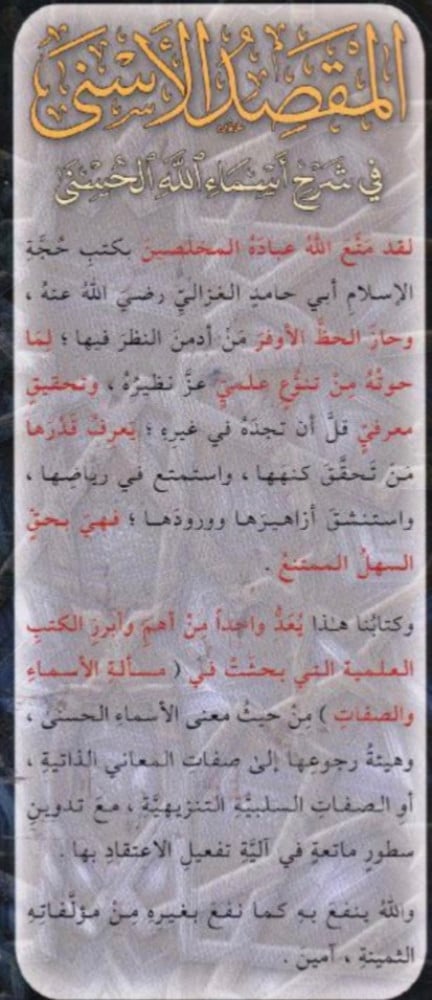 المَقْصِدُ الأَسْنَى
في شَرْحِ أَسْمَاءِ اللهِ الحُسْنَى
لقد مَتَّعَ اللهُ عبادَهُ المخلصينَ بكتبِ حُجَّةِ
الإسلامِ أبي حامدٍ الغزاليِّ رضيَ اللهُ عنهُ ،
وحازَ الحظَّ الأوفرَ مَنْ أدمنَ النظرَ فيها ؛ لِمَا
حوتْهُ مِنْ تنوُّعٍ علميٍّ عزَّ نظيرُهُ ، وتحقيقٍ
معرفيٍّ قلَّ أن تجدَهُ في غيرِهِ ؛ يَعرِفُ قَدْرَها
مَنْ تَحقَّقَ كنهَها ، واستمتع في رياضِها ،
واستنشقَ أزاهيرَها وورودَها ؛ فهيَ بحقٍّ
السهلُ الممتنعُ .
وكتابُنا هـٰذا يُعَدُّ واحداً مِنْ أهمِّ وأبرزِ الكتبِ
العلميةِ التي بحثَتْ في ( مسألةِ الأسماءِ
والصفاتِ ) مِنْ حيثُ معنى الأسماءِ الحسنىٰ ،
وهيئةُ رجوعِها إلىٰ صفاتِ المعاني الذاتيةِ ،
أوِ الصفاتِ السلبيَّةِ التنزيهيَّةِ ، معَ تدوينِ
سطورٍ ماتعةٍ في آليَّةِ تفعيلِ الاعتقادِ بها .
واللهُ ينفعُ بهِ كما نفعَ بغيرِهِ مِنْ مؤلَّفاتِهِ
الثمينةِ ، آمينَ .